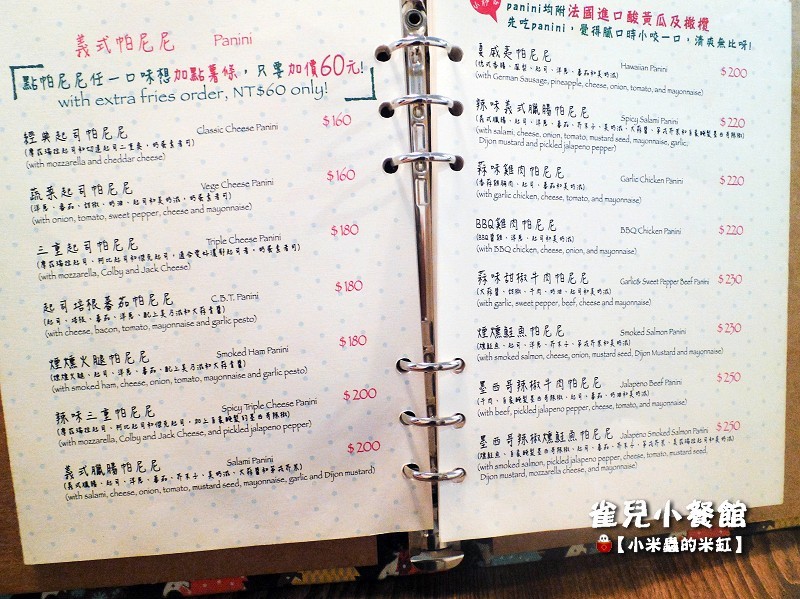 義式帕尼尼 Panini
點帕尼尼任一口味想加點薯條，只要加價60元!
with extra fries order, NT$60 only!
經典起司帕尼尼 Classic Cheese Panini $160
(with mozzarella and cheddar cheese)
蔬菜起司帕尼尼 Vege Cheese Panini $160
(洋蔥、番茄、甜椒、奶油、起司和美奶滋，奶蛋素可)
(with onion, tomato, sweet pepper, cheese and mayonnaise)
三重起司帕尼尼 Triple Cheese Panini $180
(with mozzarella, Colby and Jack Cheese)
起司培根蕃茄帕尼尼 C.B.T. Panini $180
(起司、培根、番茄、洋蔥，配上美乃滋和大蒜青醬)
(with cheese, bacon, tomato, mayonnaise and garlic pesto)
煙燻火腿帕尼尼 Smoked Ham Panini $180
(煙燻火腿、起司、洋蔥、番茄，配上美乃滋和大蒜青醬)
(with smoked ham, cheese, onion, tomato, mayonnaise and garlic pesto)
辣味三重帕尼尼 Spicy Triple Cheese Panini $200
(with mozzarella, Colby and Jack Cheese, and pickled jalapeno pepper)
義式臘腸帕尼尼 Salami Panini $200
(義式臘腸、起司、洋蔥、番茄、芥末子、美奶滋、大蒜醬和第戎芥末)
(with salami, cheese, onion, tomato, mustard seed, mayonnaise, garlic and Dijon mustard)
panini均附法國進口酸黃瓜及橄欖
先吃panini，覺得膩口時小咬一口，清爽無比呀!
夏威夷帕尼尼 Hawaiian Panini $200
(德式香腸、鳳梨、起司、洋蔥、番茄和美奶滋)
(with German Sausage, pineapple, cheese, onion, tomato, and mayonnaise)
辣味義式臘腸帕尼尼 Spicy Salami Panini $220
(with salami, cheese, onion, tomato, mustard seed, mayonnaise, garlic,
Dijon mustard and pickled jalapeno pepper)
蒜味雞肉帕尼尼 Garlic Chicken Panini $220
(香蒜雞胸肉、起司、番茄和美奶滋)
(with garlic chicken, cheese, tomato, and mayonnaise)
BBQ雞肉帕尼尼 BBQ Chicken Panini $220
(BBQ醬雞、洋蔥、起司和美奶滋)
(with BBQ chicken, cheese, onion, and mayonnaise)
蒜味甜椒牛肉帕尼尼 Garlic& Sweet Pepper Beef Panini $230
(大蒜、甜椒、牛肉、奶油、起司和美奶滋)
(with garlic, sweet pepper, beef, cheese and mayonnaise)
煙燻鮭魚帕尼尼 Smoked Salmon Panini $230
(燻鮭魚、起司、洋蔥、芥末子、第戎芥末和美奶滋)
(with smoked salmon, cheese, onion, mustard seed, Dijon Mustard and mayonnaise)
墨西哥辣椒牛肉帕尼尼 Jalapeno Beef Panini $250
(with beef, pickled jalapeno pepper, cheese, tomato, and mayonnaise)
墨西哥辣椒燻鮭魚帕尼尼 Jalapeno Smoked Salmon Panini $250
(with smoked salmon, pickled jalapeno pepper, cheese, onion, tomato, mustard seed,
Dijon mustard, mozzarella cheese, and mayonnaise)
雀兒小餐館
【小米蟲的米缸】